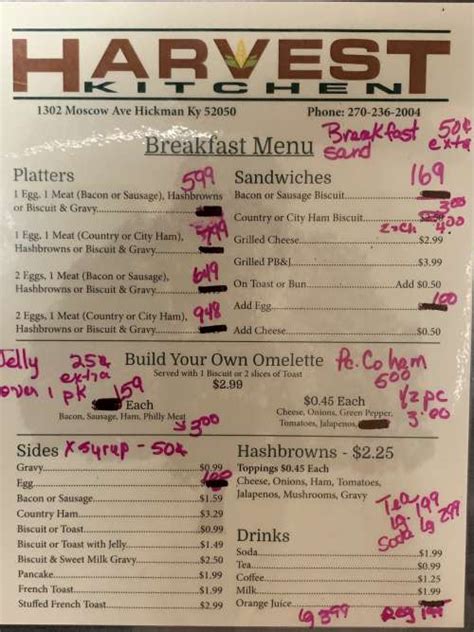 HARVEST
KITCHEN
1302 Moscow Ave Hickman Ky 52050 Phone: 270-236-2004
Breakfast 50¢
sand extra
Breakfast Menu
Platters 599
1 Egg, 1 Meat (Bacon or Sausage), Hashbrowns
or Biscuit & Gravy
1 Egg, 1 Meat (Country or City Ham),
Hashbrowns or Biscuit & Gravy
2 Eggs, 1 Meat (Bacon or Sausage), 649
Hashbrowns or Biscuit & Gravy
2 Eggs, 1 Meat (Country or City Ham), 948
Hashbrowns or Biscuit & Gravy
Sandwiches 169
Bacon or Sausage Biscuit
300
Country or City Ham Biscuit
400
Grilled Cheese $2.99
Grilled PB&J $3.99
On Toast or Bun Add $0.50
Add Egg 100
Add Cheese $0.50
Jelly 25¢
extra
over 1 pk
Build Your Own Omelette
Served with 1 Biscuit or 2 slices of Toast
$2.99
Pc. Co ham
500
1/2 pc
3.00
159
Each
Bacon, Sausage, Ham, Philly Meat
300
$0.45 Each
Cheese, Onions, Green Pepper,
Tomatoes, Jalapenos
Sides X Syrup - 50¢
Gravy $0.99
Egg 100
Bacon or Sausage $1.59
Country Ham $3.29
Biscuit or Toast $0.99
Biscuit or Toast with Jelly $1.49
Biscuit & Sweet Milk Gravy $2.50
Pancake $1.99
French Toast $1.99
Stuffed French Toast $2.99
Hashbrowns - $2.25
Toppings $0.45 Each
Cheese, Onions, Ham, Tomatoes,
Jalapenos, Mushrooms, Gravy
Tea
lg. 199
Soda lg 299
Drinks
Soda $1.99
Tea $0.99
Coffee $1.25
Milk $1.99
Orange Juice
lg 399 Reg 199